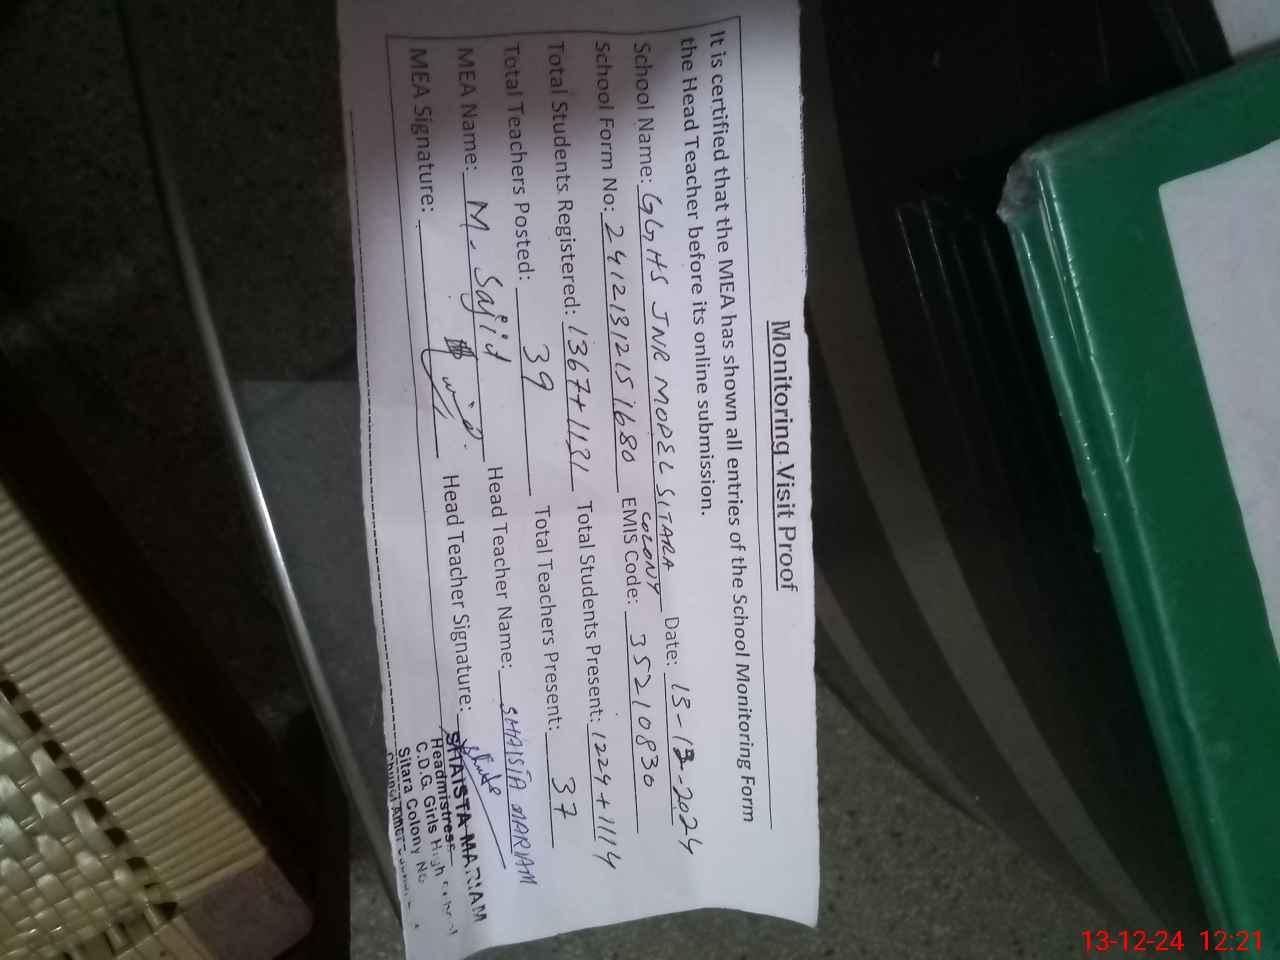 Monitoring Visit Proof
It is certified that the MEA has shown all entries of the School Monitoring Form
the Head Teacher before its online submission.
School Name: GGHS JNR MODEL SITARA COLONY Date: 13-12-2024
School Form No: 24121312151680 EMIS Code: 35210830
Total Students Registered: 1367+1131 Total Students Present: 1224+1114
Total Teachers Posted: 39 Total Teachers Present: 37
MEA Name: M. Sajid Head Teacher Name: SHAISTA MARIAM
MEA Signature: Head Teacher Signature:
SHAISTA MARIAM
Headmistress
C.D.G. Girls High
Sitara Colony No
Chungi Amer
13-12-24 12:21